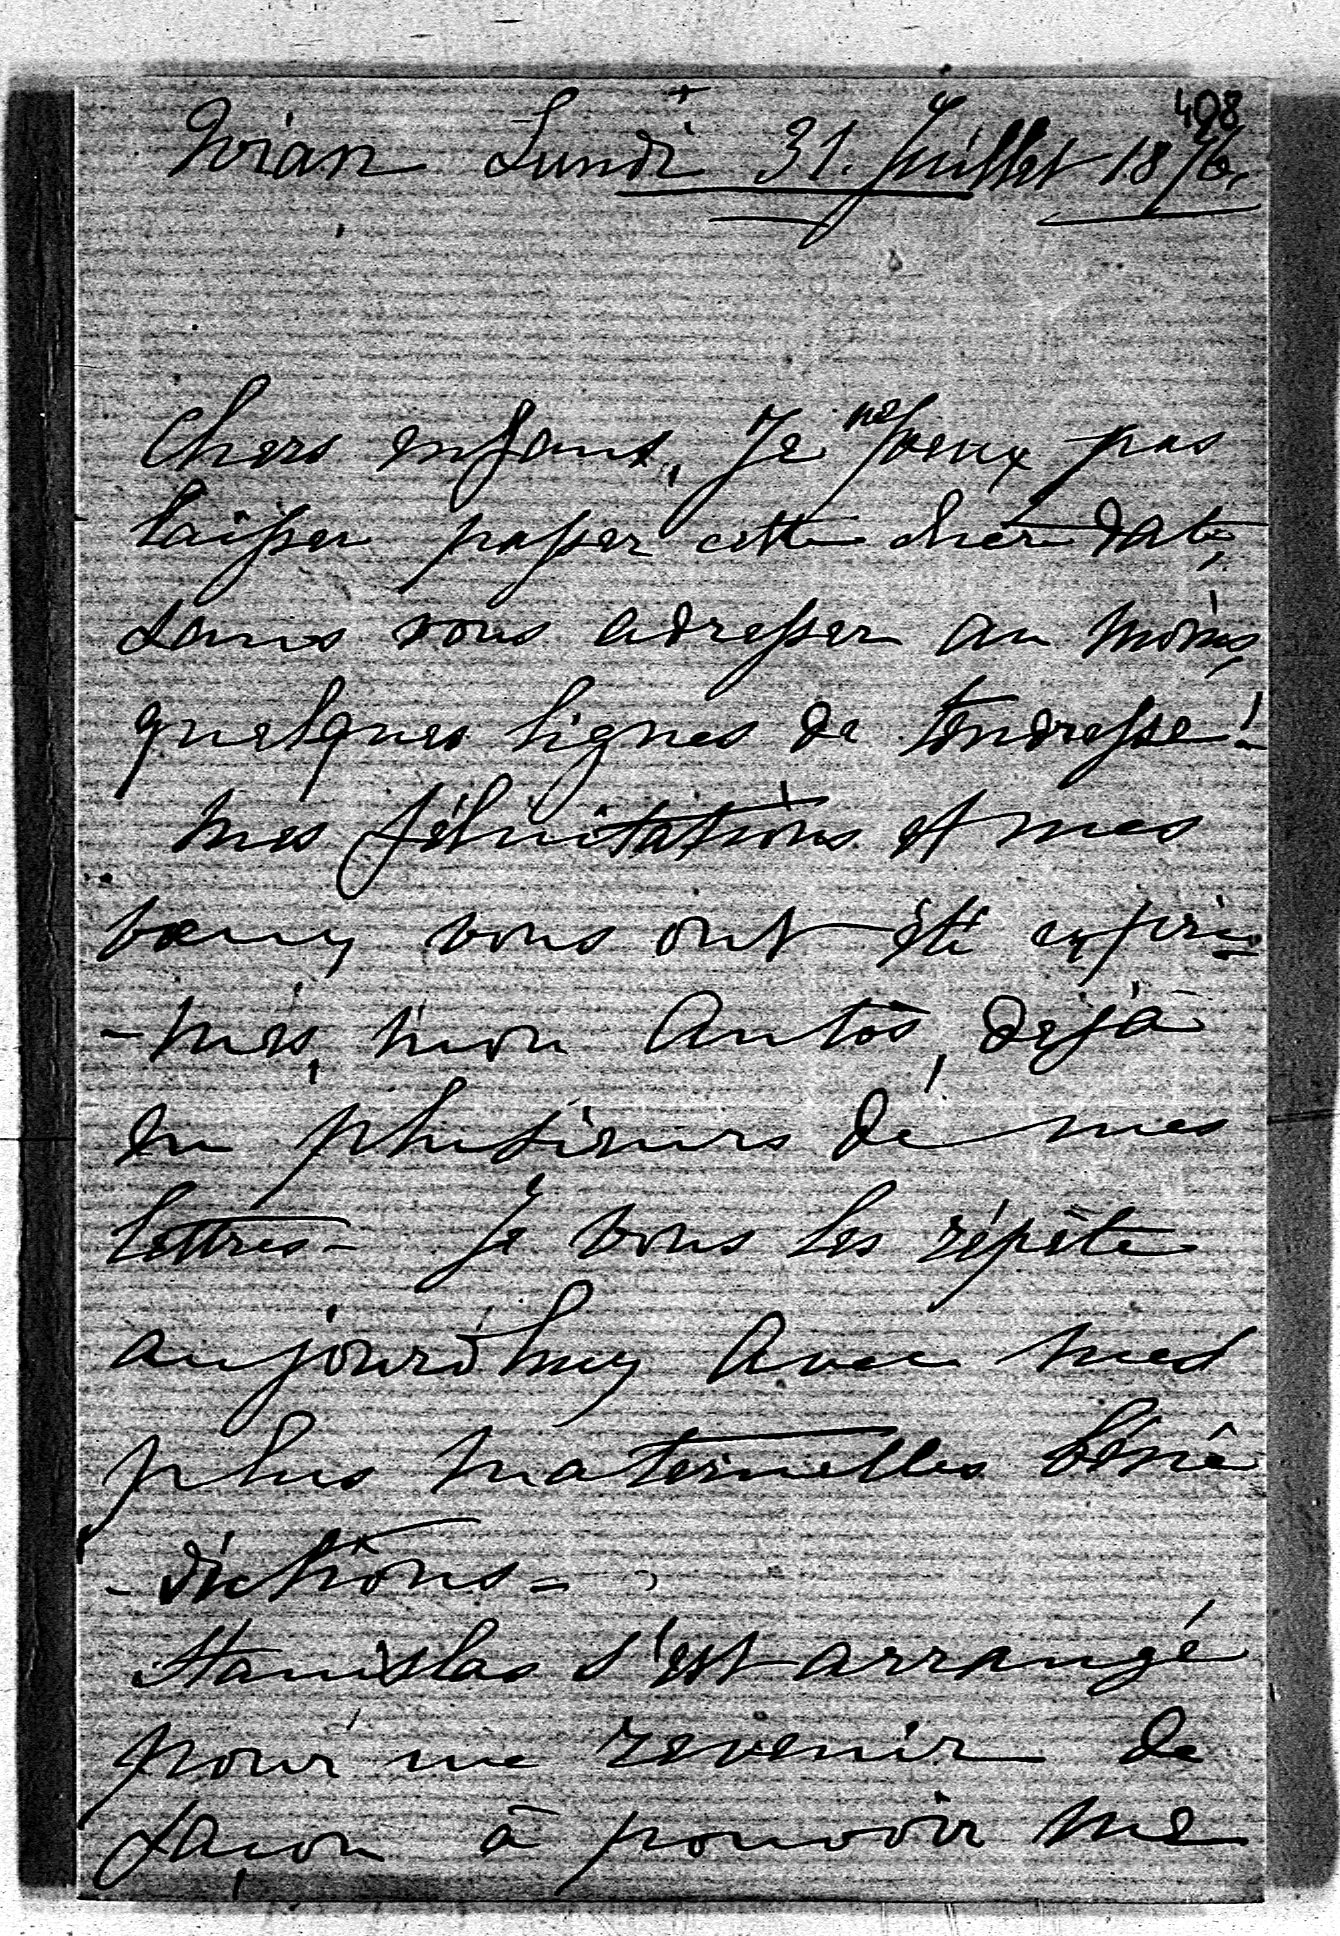 408
Evian Lundi 31. Juillet 1876.
Chers enfans, Je ne peux pas
laisser passer cette chère date,
sans vous adresser au moins,
quelques lignes de tendresse!
Mes félicitations et mes
vœux vous ont été expri=
-més, mon Antos, déjà
en plusieurs de mes
lettres - Je vous les répète
aujourd'huy avec mes
plus maternelles béné
-dictions -
Stanislas s'est arrangé
pour me revenir de
façon à pouvoir me